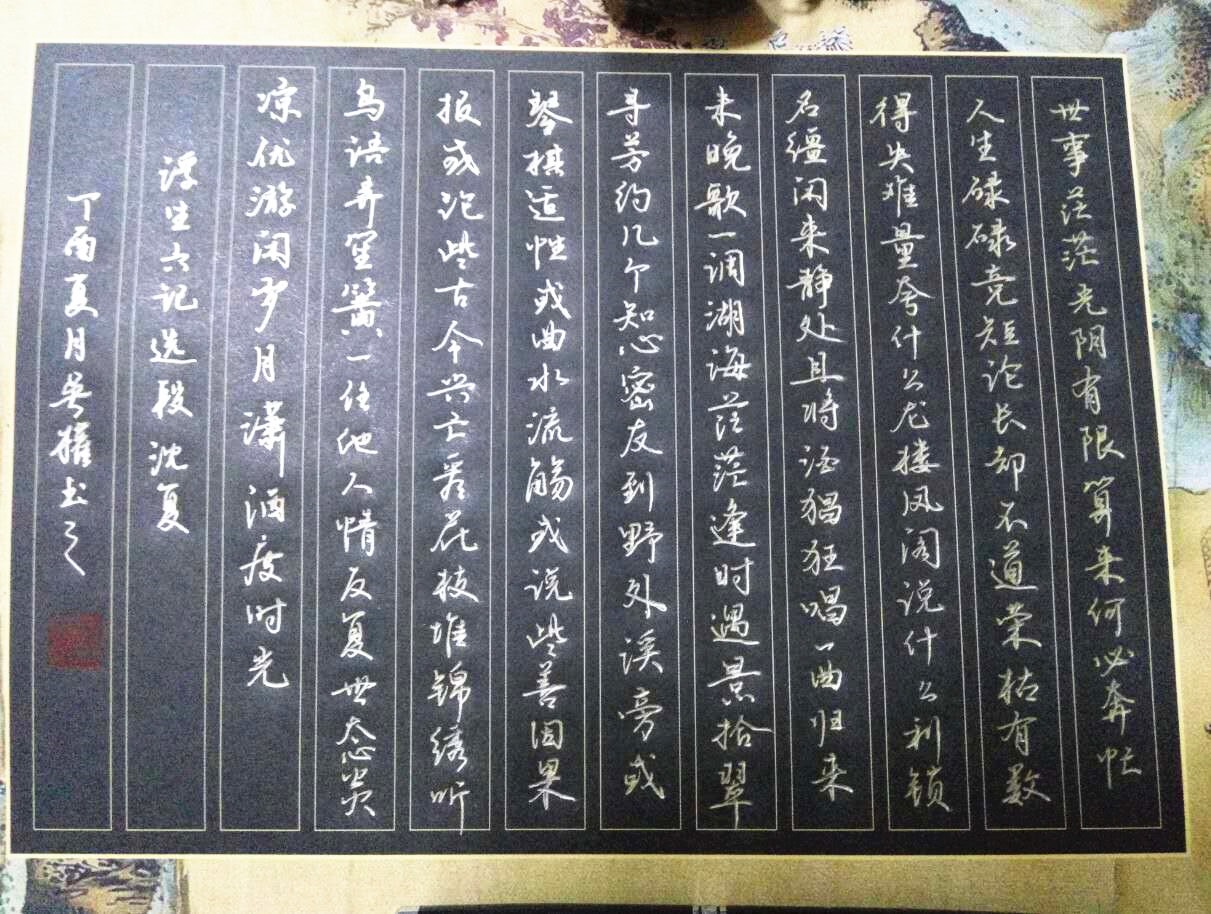 世事茫茫光阴有限算来何必奔忙
人生碌碌竞短论长却不道荣枯有数
得失难量夸什么龙楼凤阁说什么利锁
名缰闲来静处且将酒猖狂唱一曲归来
未晚歌一调湖海茫茫逢时遇景拾翠
寻芳约几个知心密友到野外溪旁或
琴棋适性或曲水流觞或说些善因果
报或论些古今兴亡看花枝堆锦绣听
鸟语弄笙簧一任他人情反复世态炎
凉优游闲岁月潇洒度时光
浮生六记选段沈复
丁酉夏月 书之